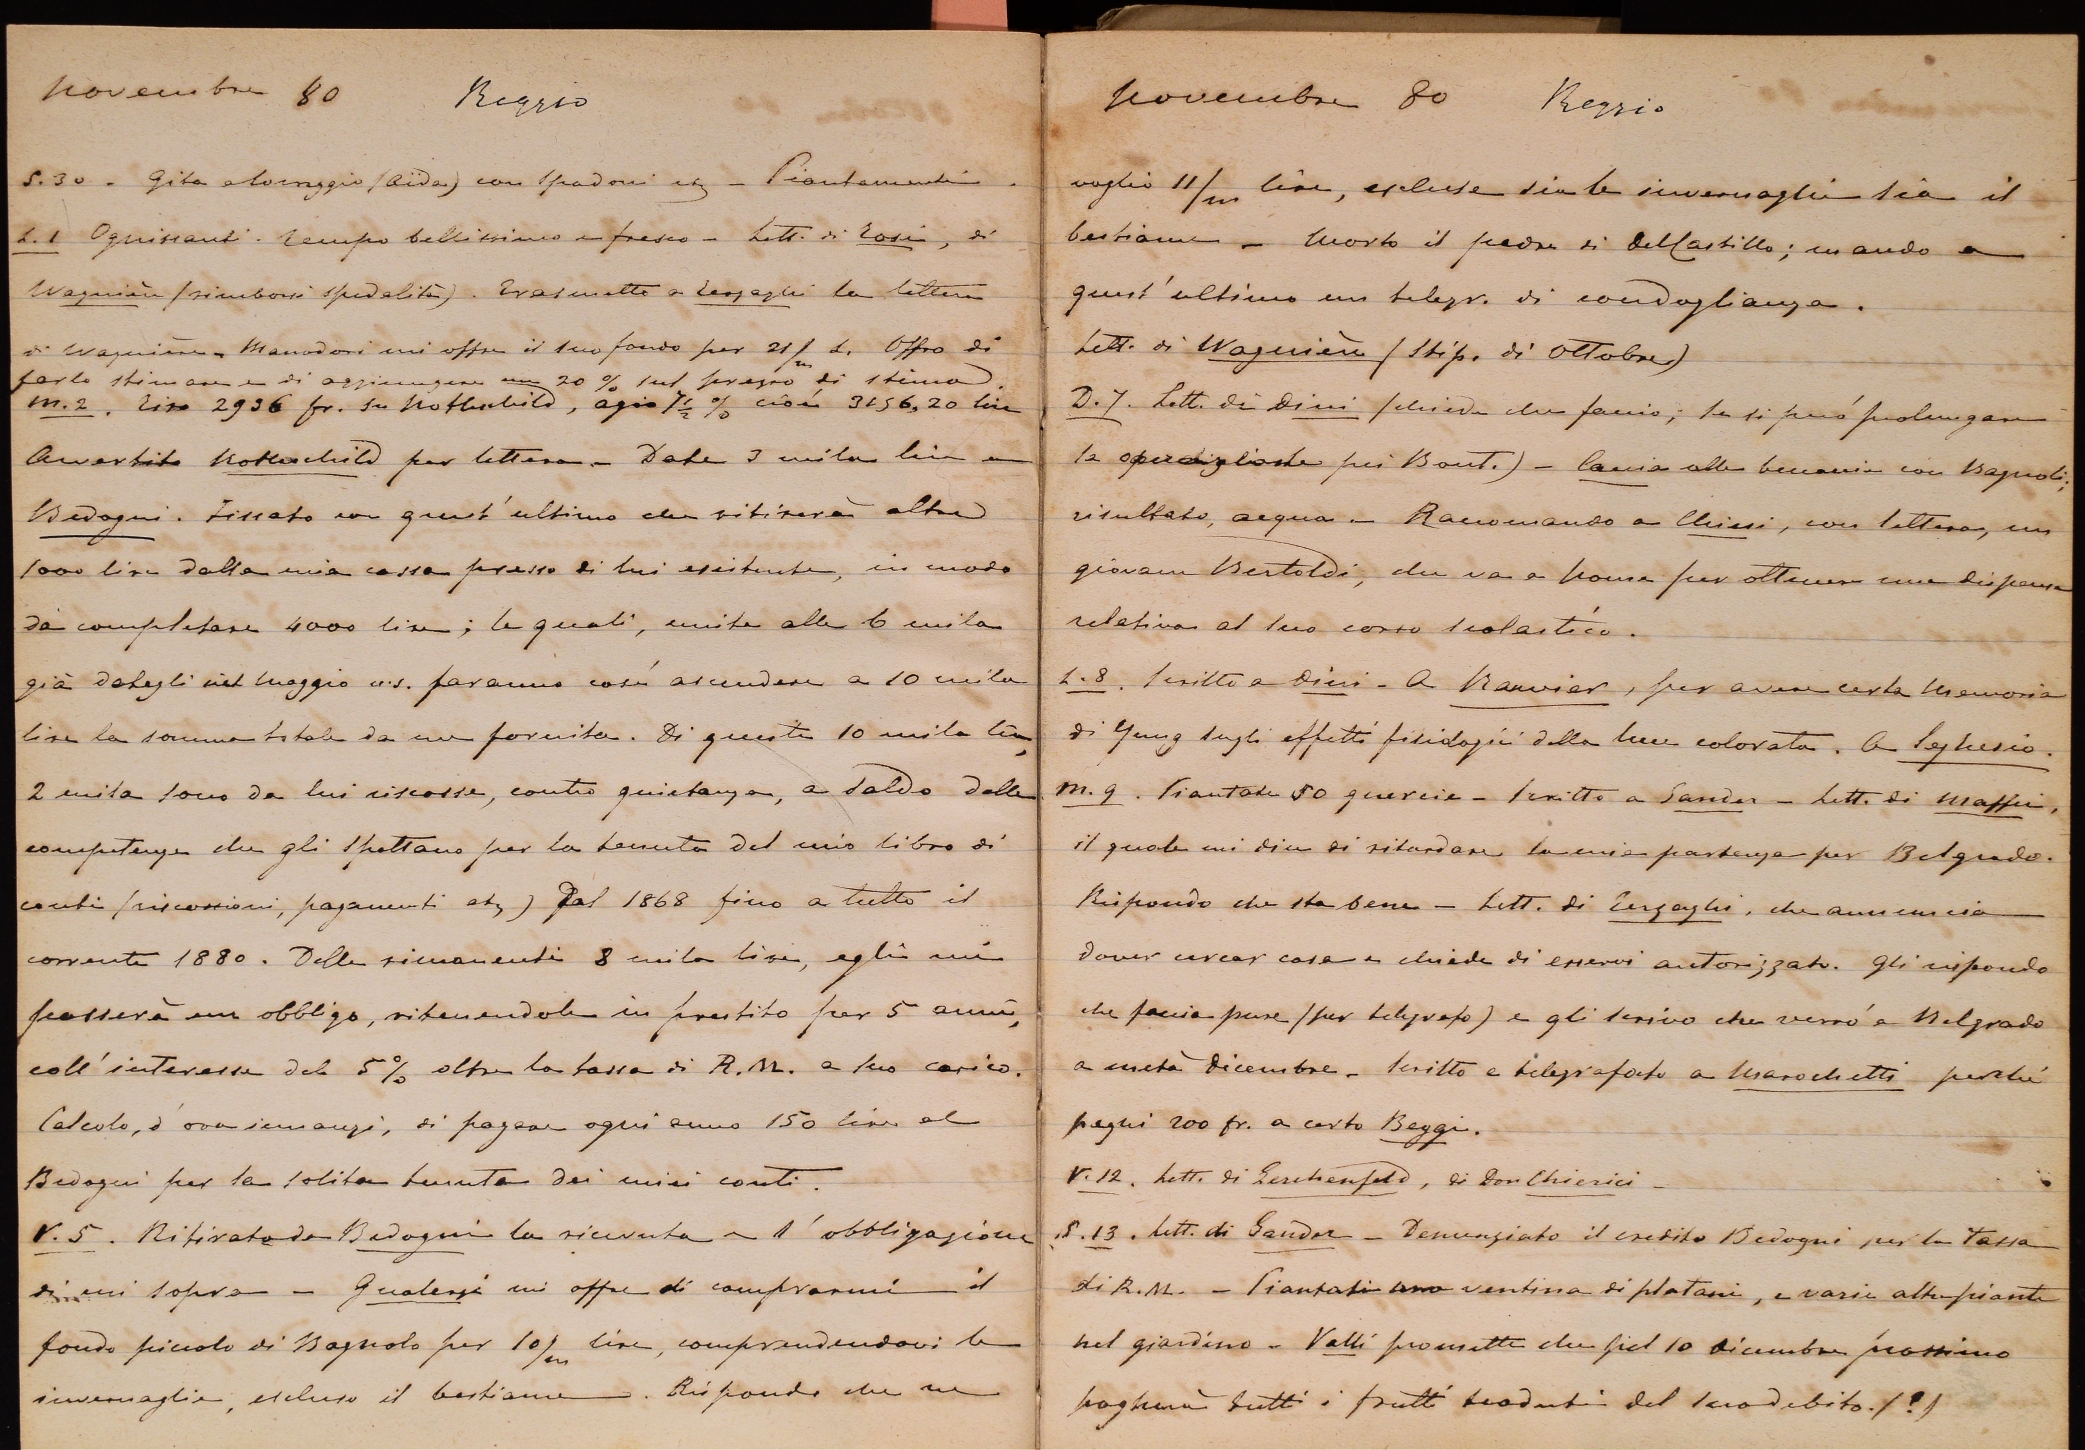 Novembre 80 Reggio
S. 30 - Gita a Correggio (Aïda) con Spadoni etz - Piantamenti.
L. 1 Ognissanti. Tempo bellissimo e fresco - Lett. di Tosi, di
Wagnière (rimborsi spedalità). Trasmetto a Terzaghi la lettera
di Wagnière - Manodori mi offre il suo fondo per 21/m L. Offro di
farlo stimare e di aggiungere un 20 % sul prezzo di stima.
M. 2. Tiro 2936 fr. su Rothschild, agio 7 1/2 % cioè 3156,20 lire
Avvertito Rothschild per lettera - Date 3 mila lire a
Bedogni. Fissato con quest'ultimo che ritirerà altre
1000 lire dalla mia cassa presso di lui esistente, in modo
da completare 4000 lire; le quali, unite alle 6 mila
già dategli nel Maggio u.s. faranno così ascendere a 10 mila
lire la somma totale da me fornita. Di queste 10 mila lire,
2 mila sono da lui riscosse, contro quietanza, a saldo delle
competenze che gli spettano per la tenuta del mio libro di
conti (riscossioni, pagamenti etz) Dal 1868 fino a tutto il
corrente 1880. Delle rimanenti 8 mila lire, egli mi
passerà un obbligo, ritenendole in prestito per 5 anni,
coll'interesse del 5% oltre la tassa di R.M. a suo carico.
Calcolo, d'ora innanzi, di pagare ogni anno 150 lire al
Bedogni per la solita tenuta dei miei conti.
V. 5. Ritirato da Bedogni la ricevuta e l'obbligazione
di cui sopra - Gualerzi mi offre di comprarmi il
fondo piccolo di Bagnolo per 10/m lire, comprendendovi le
invernaglie, escluso il bestiame. Rispondo che ne
Novembre 80 Reggio
voglio 11/m lire, escluse sia le invernaglie sia il
bestiame - Morto il padre di Del Castillo; mando a
quest'ultimo un telegr. di condoglianza.
Lett. di Wagnière (Stip. di Ottobre)
D. 7. Lett. di Dini (chiede che faccio; se si può prolungare
la per Bont.) - Caccia alle beccaccie con Bagnoli;
risultato, acqua - Raccomando a Chiesi, con lettera, un
giovane Bertoldi, che va a Roma per ottenere una dispensa
relativa al suo corso scolastico.
L. 8. Scritto a Dini - A Ranvier, per avere certa Memoria
di Yung sugli effetti fisiologici della luce colorata. A Seghesio.
M. 9. Piantate 50 quercie - Scritto a Sander - Lett. di Maffei,
il quale mi dice di ritardare la mia partenza per Belgrado.
Rispondo che sta bene - Lett. di Terzaghi, che annuncia
dover cercar casa e chiede di esservi autorizzato. Gli rispondo
che faccia pure (per telegrafo) e gli scrivo che verrò a Belgrado
a metà Dicembre - Scritto e telegrafato a Marochetti perché
paghi 200 fr. a certo Beggi.
V. 12. Lett. di Lerchenfeld, di Don Chierici -
S. 13. Lett. di Sander - Denunziato il credito Bedogni per la Tassa
di R.M. - Piantati una ventina di platani, e varie altre piante
nel giardino - Valli promette che pel 10 dicembre prossimo
pagherà tutti i frutti scaduti del suo debito. (?)